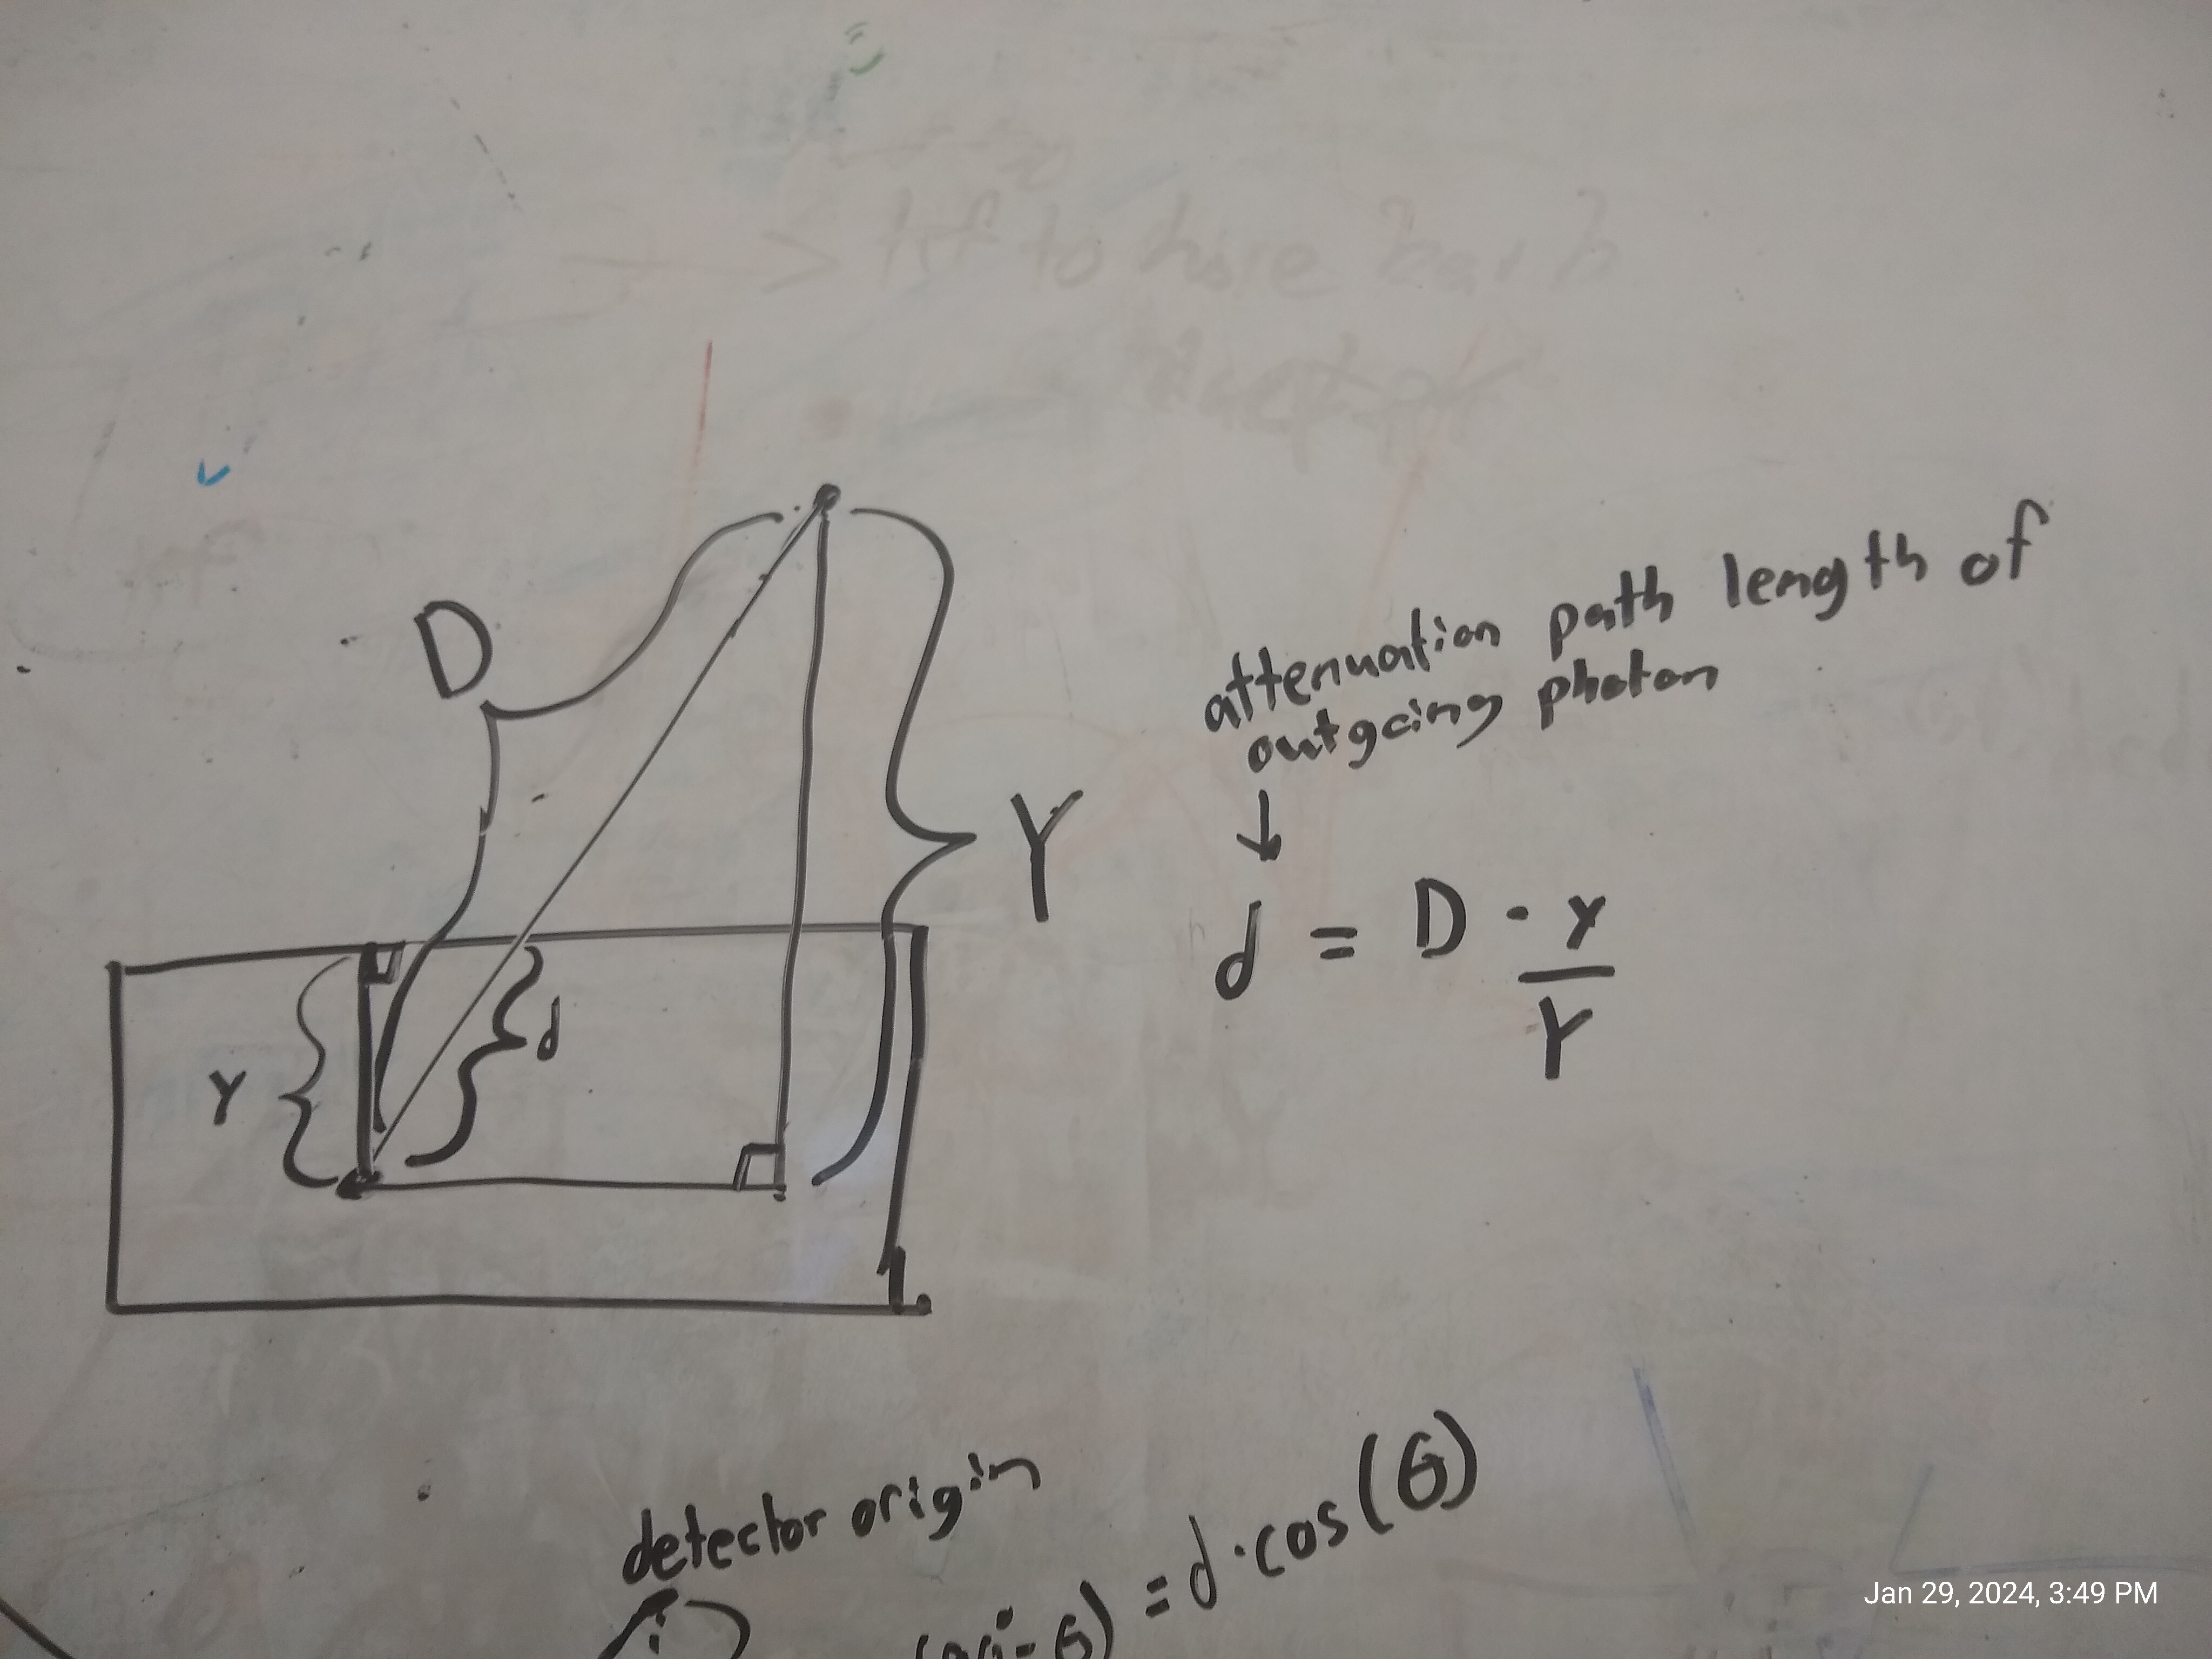 D
Y
attenuation path length of
outgoing photon
↓
d = D · y
Y
y
d
detector origin
= d·cos(θ)
Jan 29, 2024, 3:49 PM